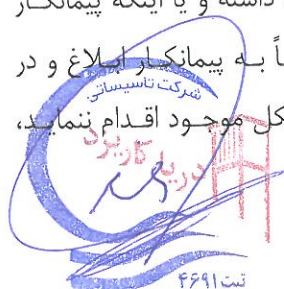 داشته و یا اینکه پیمانکار
اً به پیمانکار ابلاغ و در
کل موجود اقدام نماید،
شرکت تاسیساتی
دریا کاربرد
ثبت ۴۶۹۱